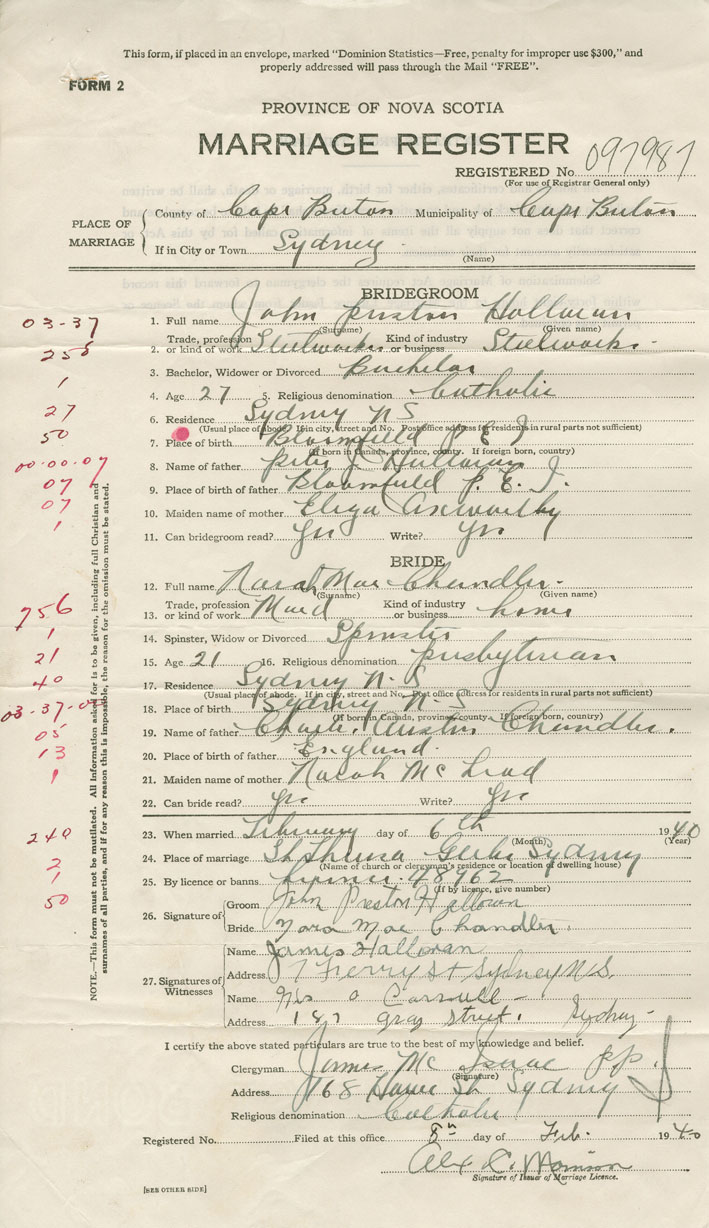 This form, if placed in an envelope, marked "Dominion Statistics—Free, penalty for improper use $300," and
properly addressed will pass through the Mail "FREE".
FORM 2
PROVINCE OF NOVA SCOTIA
MARRIAGE REGISTER
REGISTERED No. 097987
(For use of Registrar General only)
PLACE OF MARRIAGE
County of Cape Breton Municipality of Cape Breton
If in City or Town Sydney
(Name)
BRIDEGROOM
03-37
1. Full name John Preston Halloran
(Surname) (Given name)
255
2. Trade, profession or kind of work Steelworks Kind of industry or business Steelworks.
1
3. Bachelor, Widower or Divorced Bachelor
27
4. Age 27 5. Religious denomination Catholic
50
6. Residence Sydney N S
(Usual place of abode. If in city, street and No. Post office address for residents in rural parts not sufficient)
7. Place of birth Bloomfield P E I
(If born in Canada, province, county. If foreign born, country)
00-00-07
8. Name of father Peter J. Halloran
07
9. Place of birth of father Bloomfield P. E. I.
07
10. Maiden name of mother Eliza
1
11. Can bridegroom read? Yes Write? Yes
BRIDE
12. Full name Norah Mae Chandler.
(Surname) (Given name)
756
13. Trade, profession or kind of work Maid Kind of industry or business home
1
14. Spinster, Widow or Divorced Spinster
21
15. Age 21 16. Religious denomination Presbyterian
40
17. Residence Sydney N. S
(Usual place of abode. If in city, street and No. Post office address for residents in rural parts not sufficient)
03-37-0
18. Place of birth Sydney N. S
(If born in Canada, province, county. If foreign born, country)
05
19. Name of father Charles Austin Chandler.
13
20. Place of birth of father England.
1
21. Maiden name of mother Norah McLeod
22. Can bride read? Yes Write? Yes
240
23. When married February day of 6th 1940
(Month) (Year)
2
24. Place of marriage St Theresa Glebe Sydney
(Name of church or clergyman's residence or location of dwelling house)
1
25. By licence or banns license. 48962
(If by licence, give number)
50
26. Signature of
Groom John Preston Halloran
Bride Nora Mae Chandler.
27. Signatures of Witnesses
Name James Halloran
Address 7 Ferry St Sydney N.S.
Name Mrs O
Address 187 Gray Street. Sydney-
I certify the above stated particulars are true to the best of my knowledge and belief.
Clergyman James McIsaac P.P.
(Signature)
Address 168 St. Sydney
Religious denomination Catholic
Registered No. Filed at this office 8th day of Feb. 1940
Signature of Issuer of Marriage Licence.
[SEE OTHER SIDE]
NOTE.—This form must not be mutilated. All information asked for is to be given, including full Christian and
surnames of all parties, and if for any reason this is impossible, the reason for the omission must be stated.